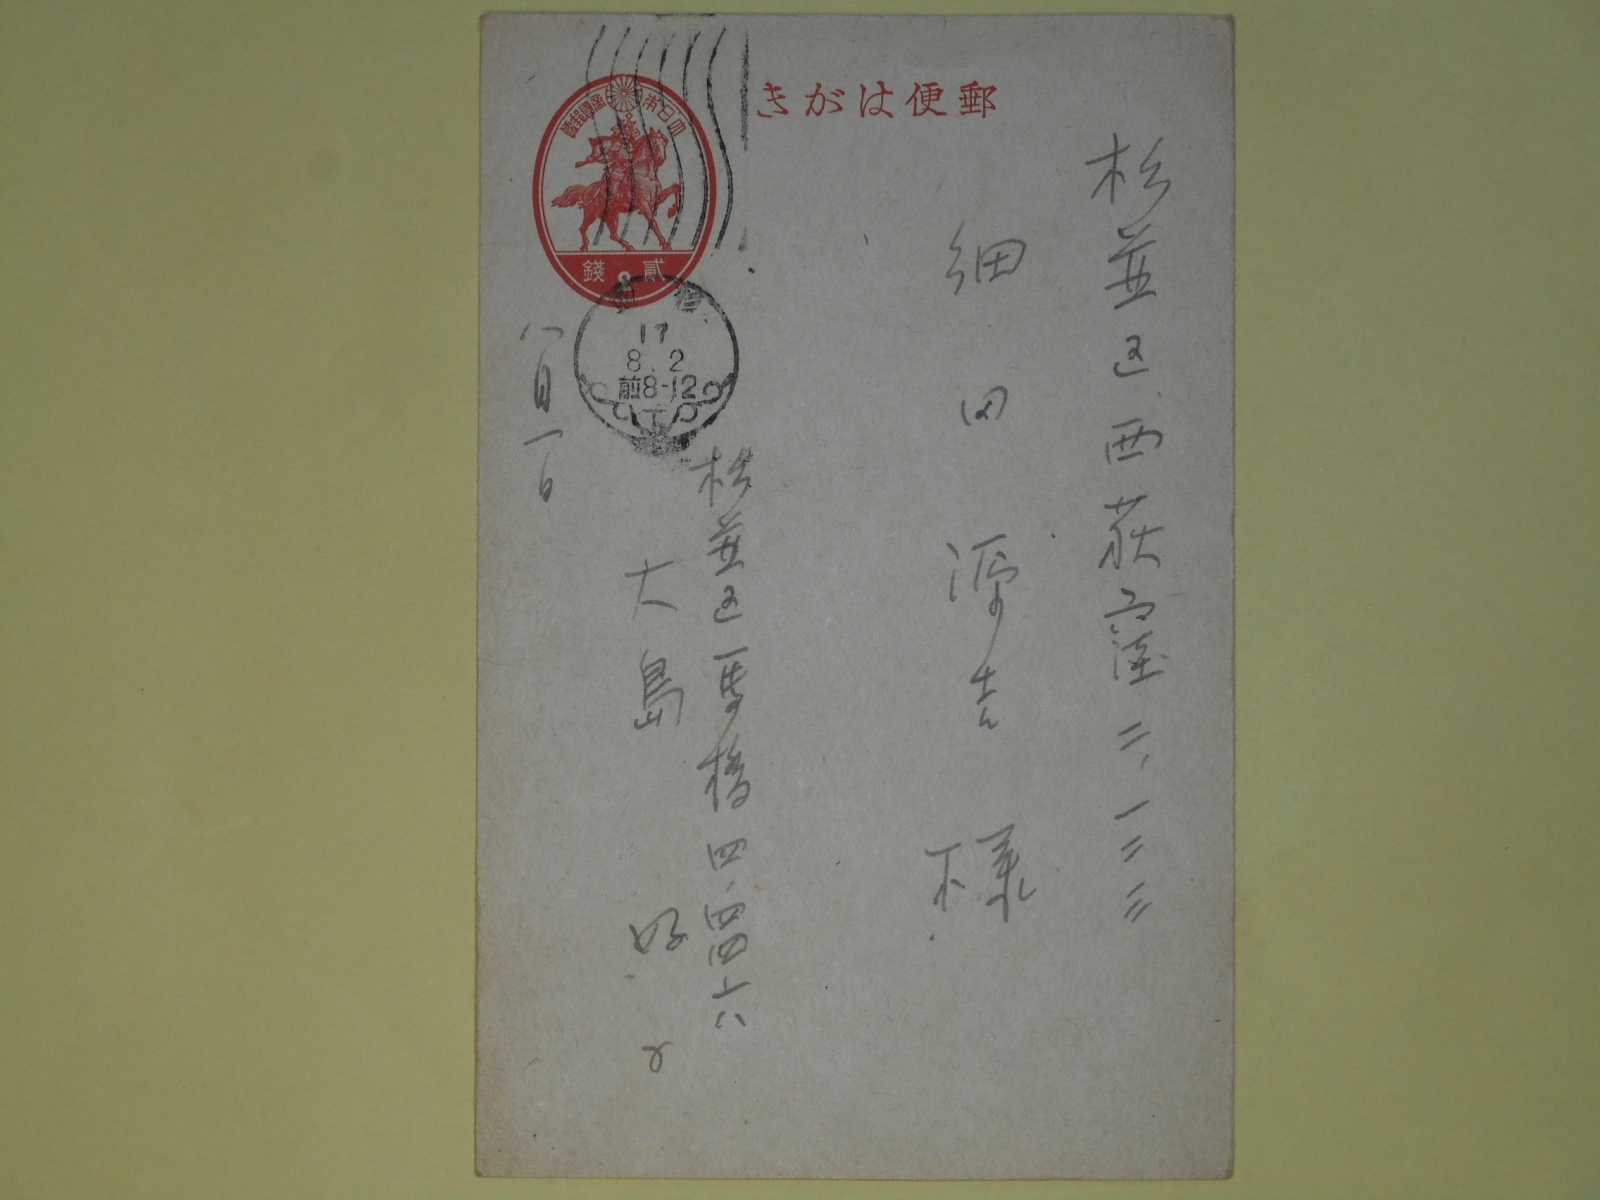 郵便はがき
大日本帝國郵便
貳錢
17
8.2
前8-12
杉並区西荻窪二、一三三
細田源吉様
杉並区馬橋四、四四六
大島
八月一日